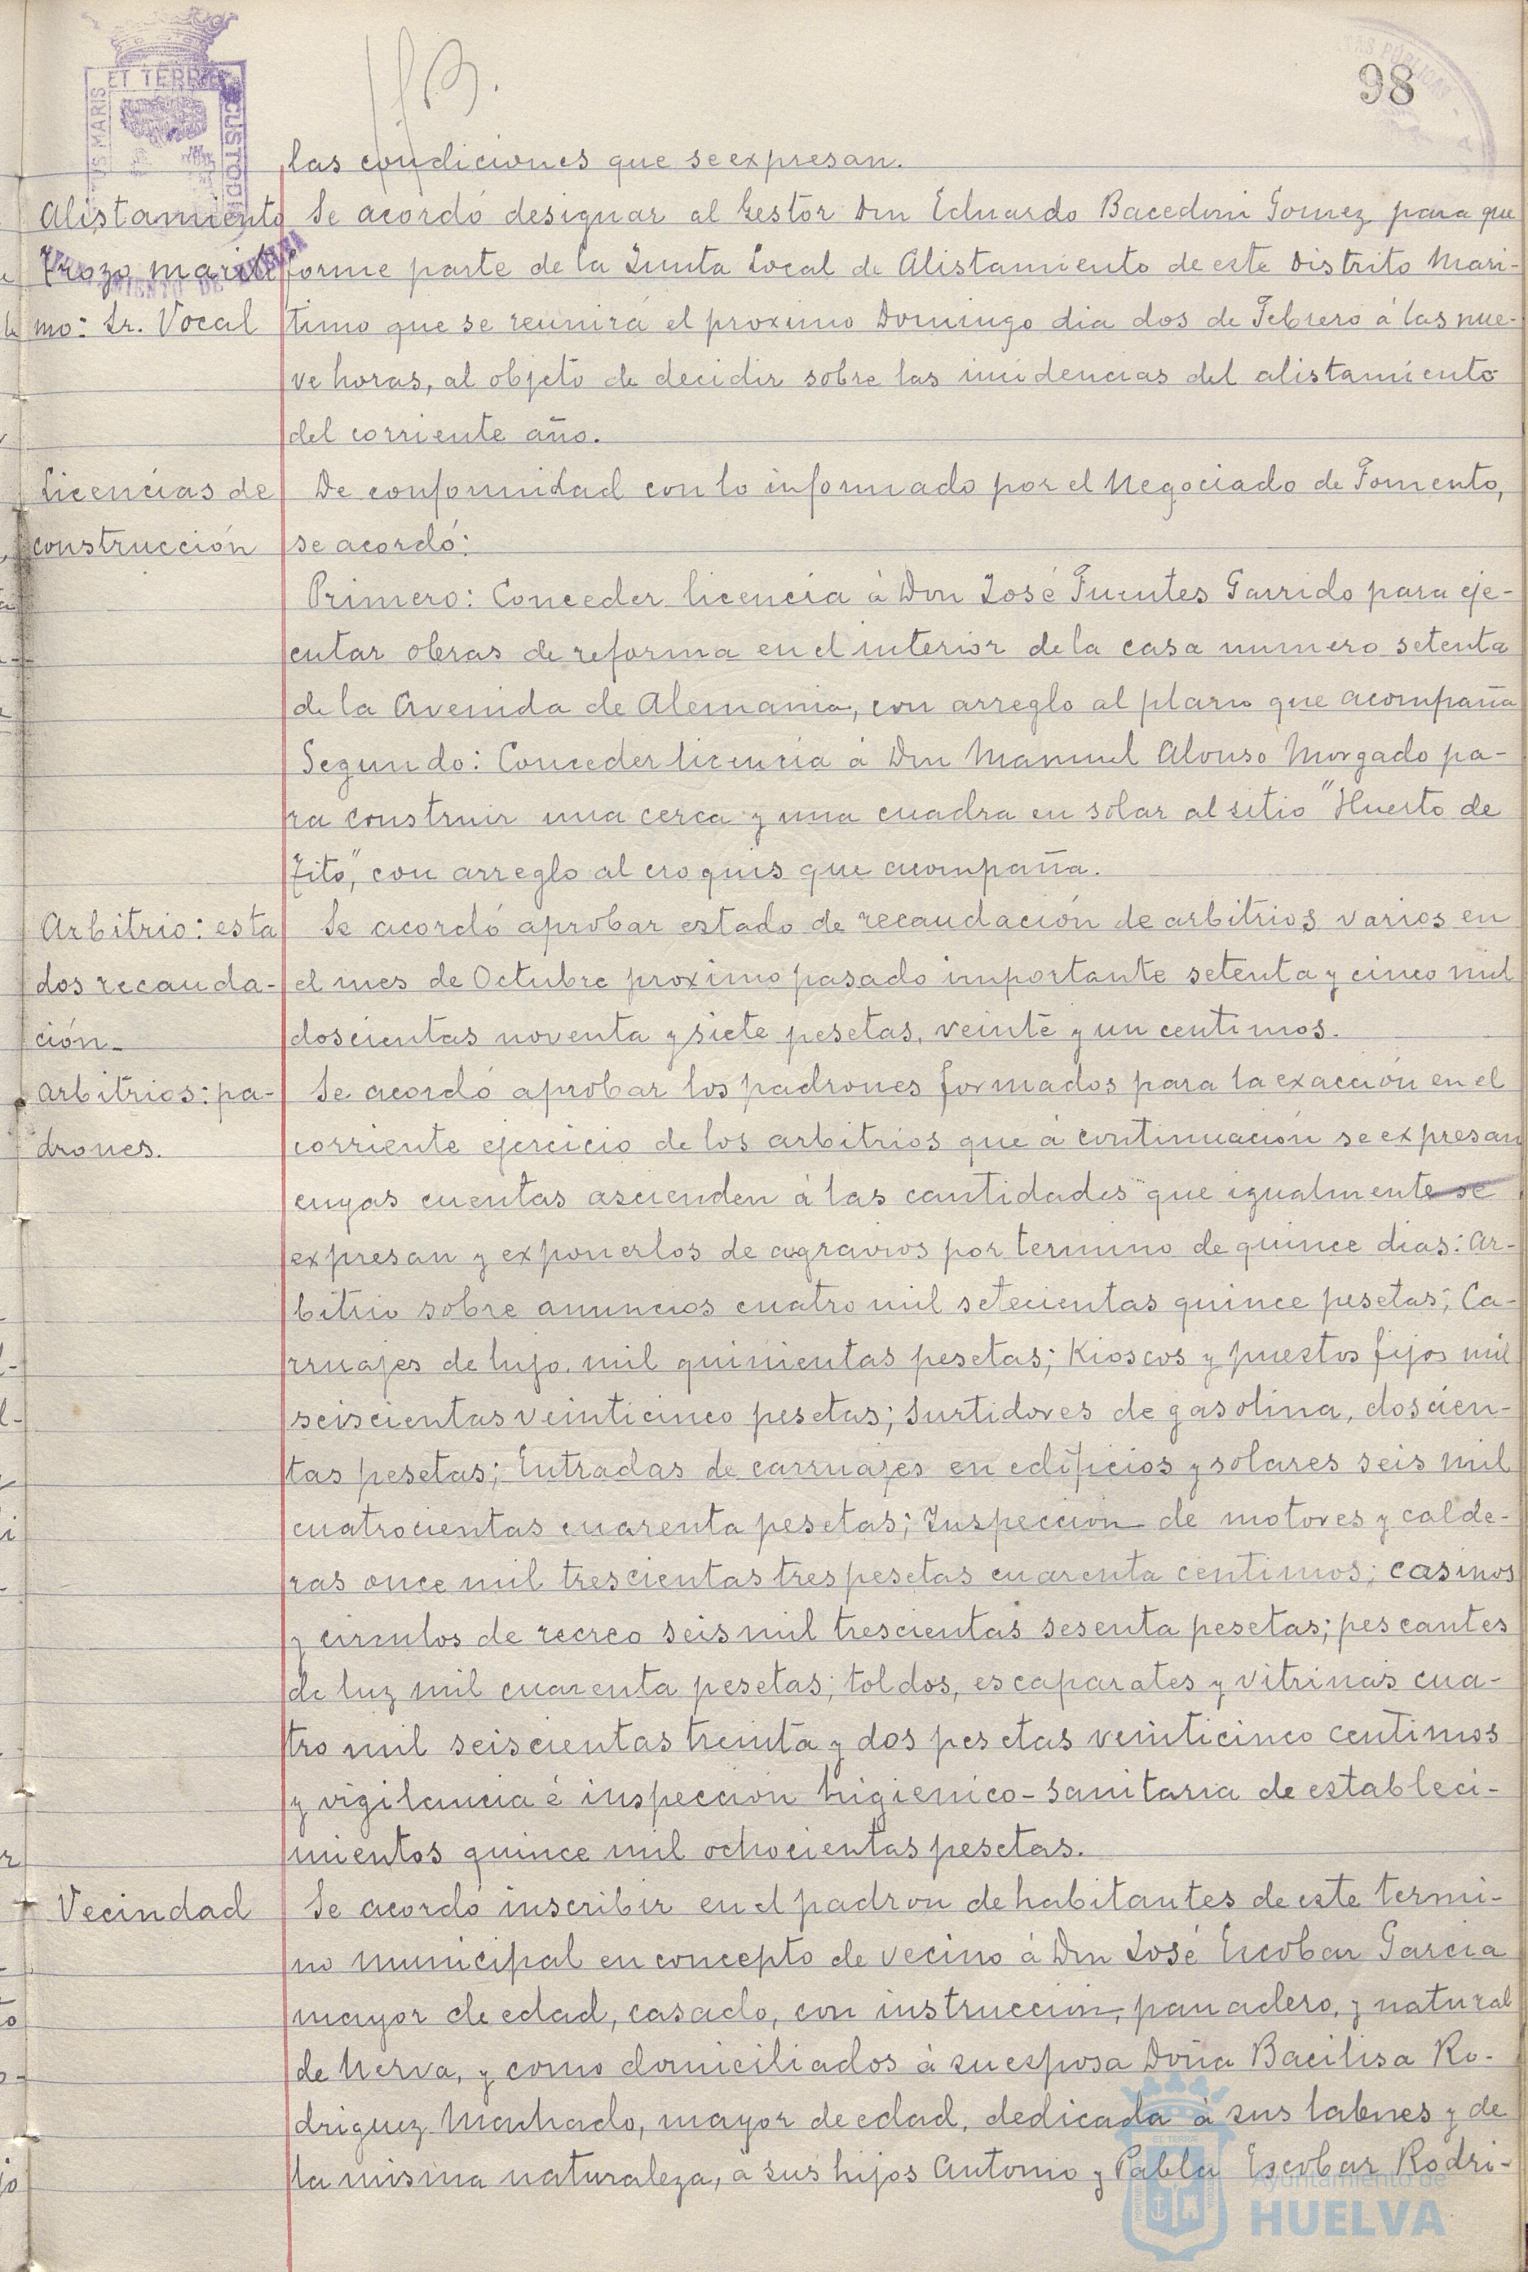 98
las condiciones que se expresan.
Alistamiento
Trozo mariti
mo: Sr. Vocal
Se acordó designar al Gestor Don Eduardo Bacedoni Gomez para que
forme parte de la Junta Local de Alistamiento de este Distrito Mari-
timo que se reunirá el proximo Domingo dia dos de Febrero á las nue-
ve horas, al objeto de decidir sobre las incidencias del alistamiento
del corriente año.
Licencias de
construcción
De conformidad con lo informado por el Negociado de Fomento,
se acordó:
Primero: Conceder licencia á Don José Fuentes Garrido para eje-
cutar obras de reforma en el interior de la casa numero setenta
de la Avenida de Alemania, con arreglo al plano que acompaña
Segundo: Conceder licencia á Don Manuel Alonso Morgado pa-
ra construir una cerca y una cuadra en solar al sitio "Huerto de
Tito", con arreglo al croquis que acompaña.
Arbitrio: esta
dos recauda-
ción.
Se acordó aprobar estado de recaudación de arbitrios varios en
el mes de Octubre proximo pasado importante setenta y cinco mil
doscientas noventa y siete pesetas, veinte y un centimos.
Arbitrios: pa-
drones.
Se acordó aprobar los padrones formados para la exacción en el
corriente ejercicio de los arbitrios que á continuación se expresan
cuyas cuentas ascienden á las cantidades que igualmente se
expresan y exponerlos de agravios por termino de quince dias: Ar-
bitrio sobre anuncios cuatro mil setecientas quince pesetas; Ca-
rruajes de lujo, mil quinientas pesetas; Kioscos y puestos fijos mil
seiscientas veinticinco pesetas; Surtidores de gasolina, doscien-
tas pesetas; Entradas de carruajes en edificios y solares seis mil
cuatrocientas cuarenta pesetas; Inspección de motores y calde-
ras once mil trescientas tres pesetas cuarenta centimos; casinos
y circulos de recreo seis mil trescientas sesenta pesetas; pescantes
de luz mil cuarenta pesetas; toldos, escaparates y vitrinas cua-
tro mil seiscientas treinta y dos pesetas veinticinco centimos
y vigilancia é inspección higienico-sanitaria de estableci-
mientos quince mil ochocientas pesetas.
Vecindad
Se acordó inscribir en el padron de habitantes de este termi-
no municipal en concepto de vecino á Don José Escobar Garcia
mayor de edad, casado, con instrucción, panadero, y natural
de Nerva, y como domiciliados á su esposa Doña Bacilisa Ro-
driguez Machado, mayor de edad, dedicada á sus labores y de
la misma naturaleza, á sus hijos Antonio y Pabla Escobar Rodri-
Ayuntamiento de
HUELVA